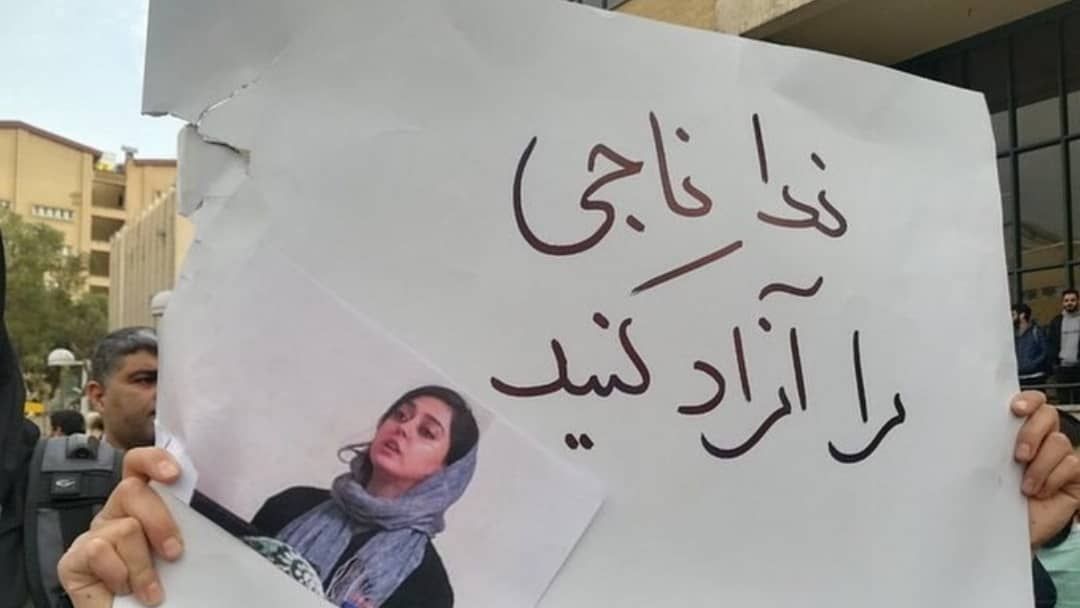 ندا ناجی
را آزاد کنید